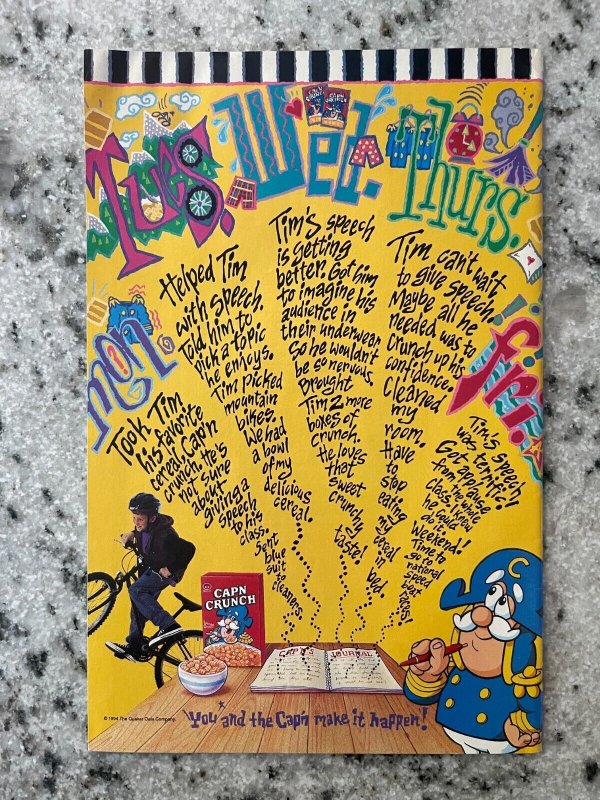 Mon.
Took Tim
his favorite
cereal, Cap'n
Crunch. He's
not sure
about
giving a
speech
to his
class.
Sent
blue
suit
to
cleaners.
Tues.
Helped Tim
with speech.
Told him to
pick a topic
he enjoys.
Tim picked
mountain
bikes.
We had
a bowl
of my
delicious
cereal.
Wed.
Tim's speech
is getting
better. Got him
to imagine his
audience in
their underwear
so he wouldn't
be so nervous.
Brought
Tim 2 more
boxes of
Crunch.
He loves
that
sweet
crunchy
taste!
Thurs.
Tim can't wait
to give speech.
Maybe all he
needed was to
Crunch up his
confidence.
Cleaned
my
room.
Have
to
stop
eating
my
cereal
in
bed.
Fri.
Tim's speech
was terrific!
Got applause
from the whole
class. I knew
he could
do it.
Weekend!
Time to
go to
national
speed
boat
races!
CAP'N
CRUNCH
CAP'N
CRUNCH
CAPN
CRUNCH
CAP'N'S JOURNAL
C
© 1994 The Quaker Oats Company.
You and the Cap'n make it happen!